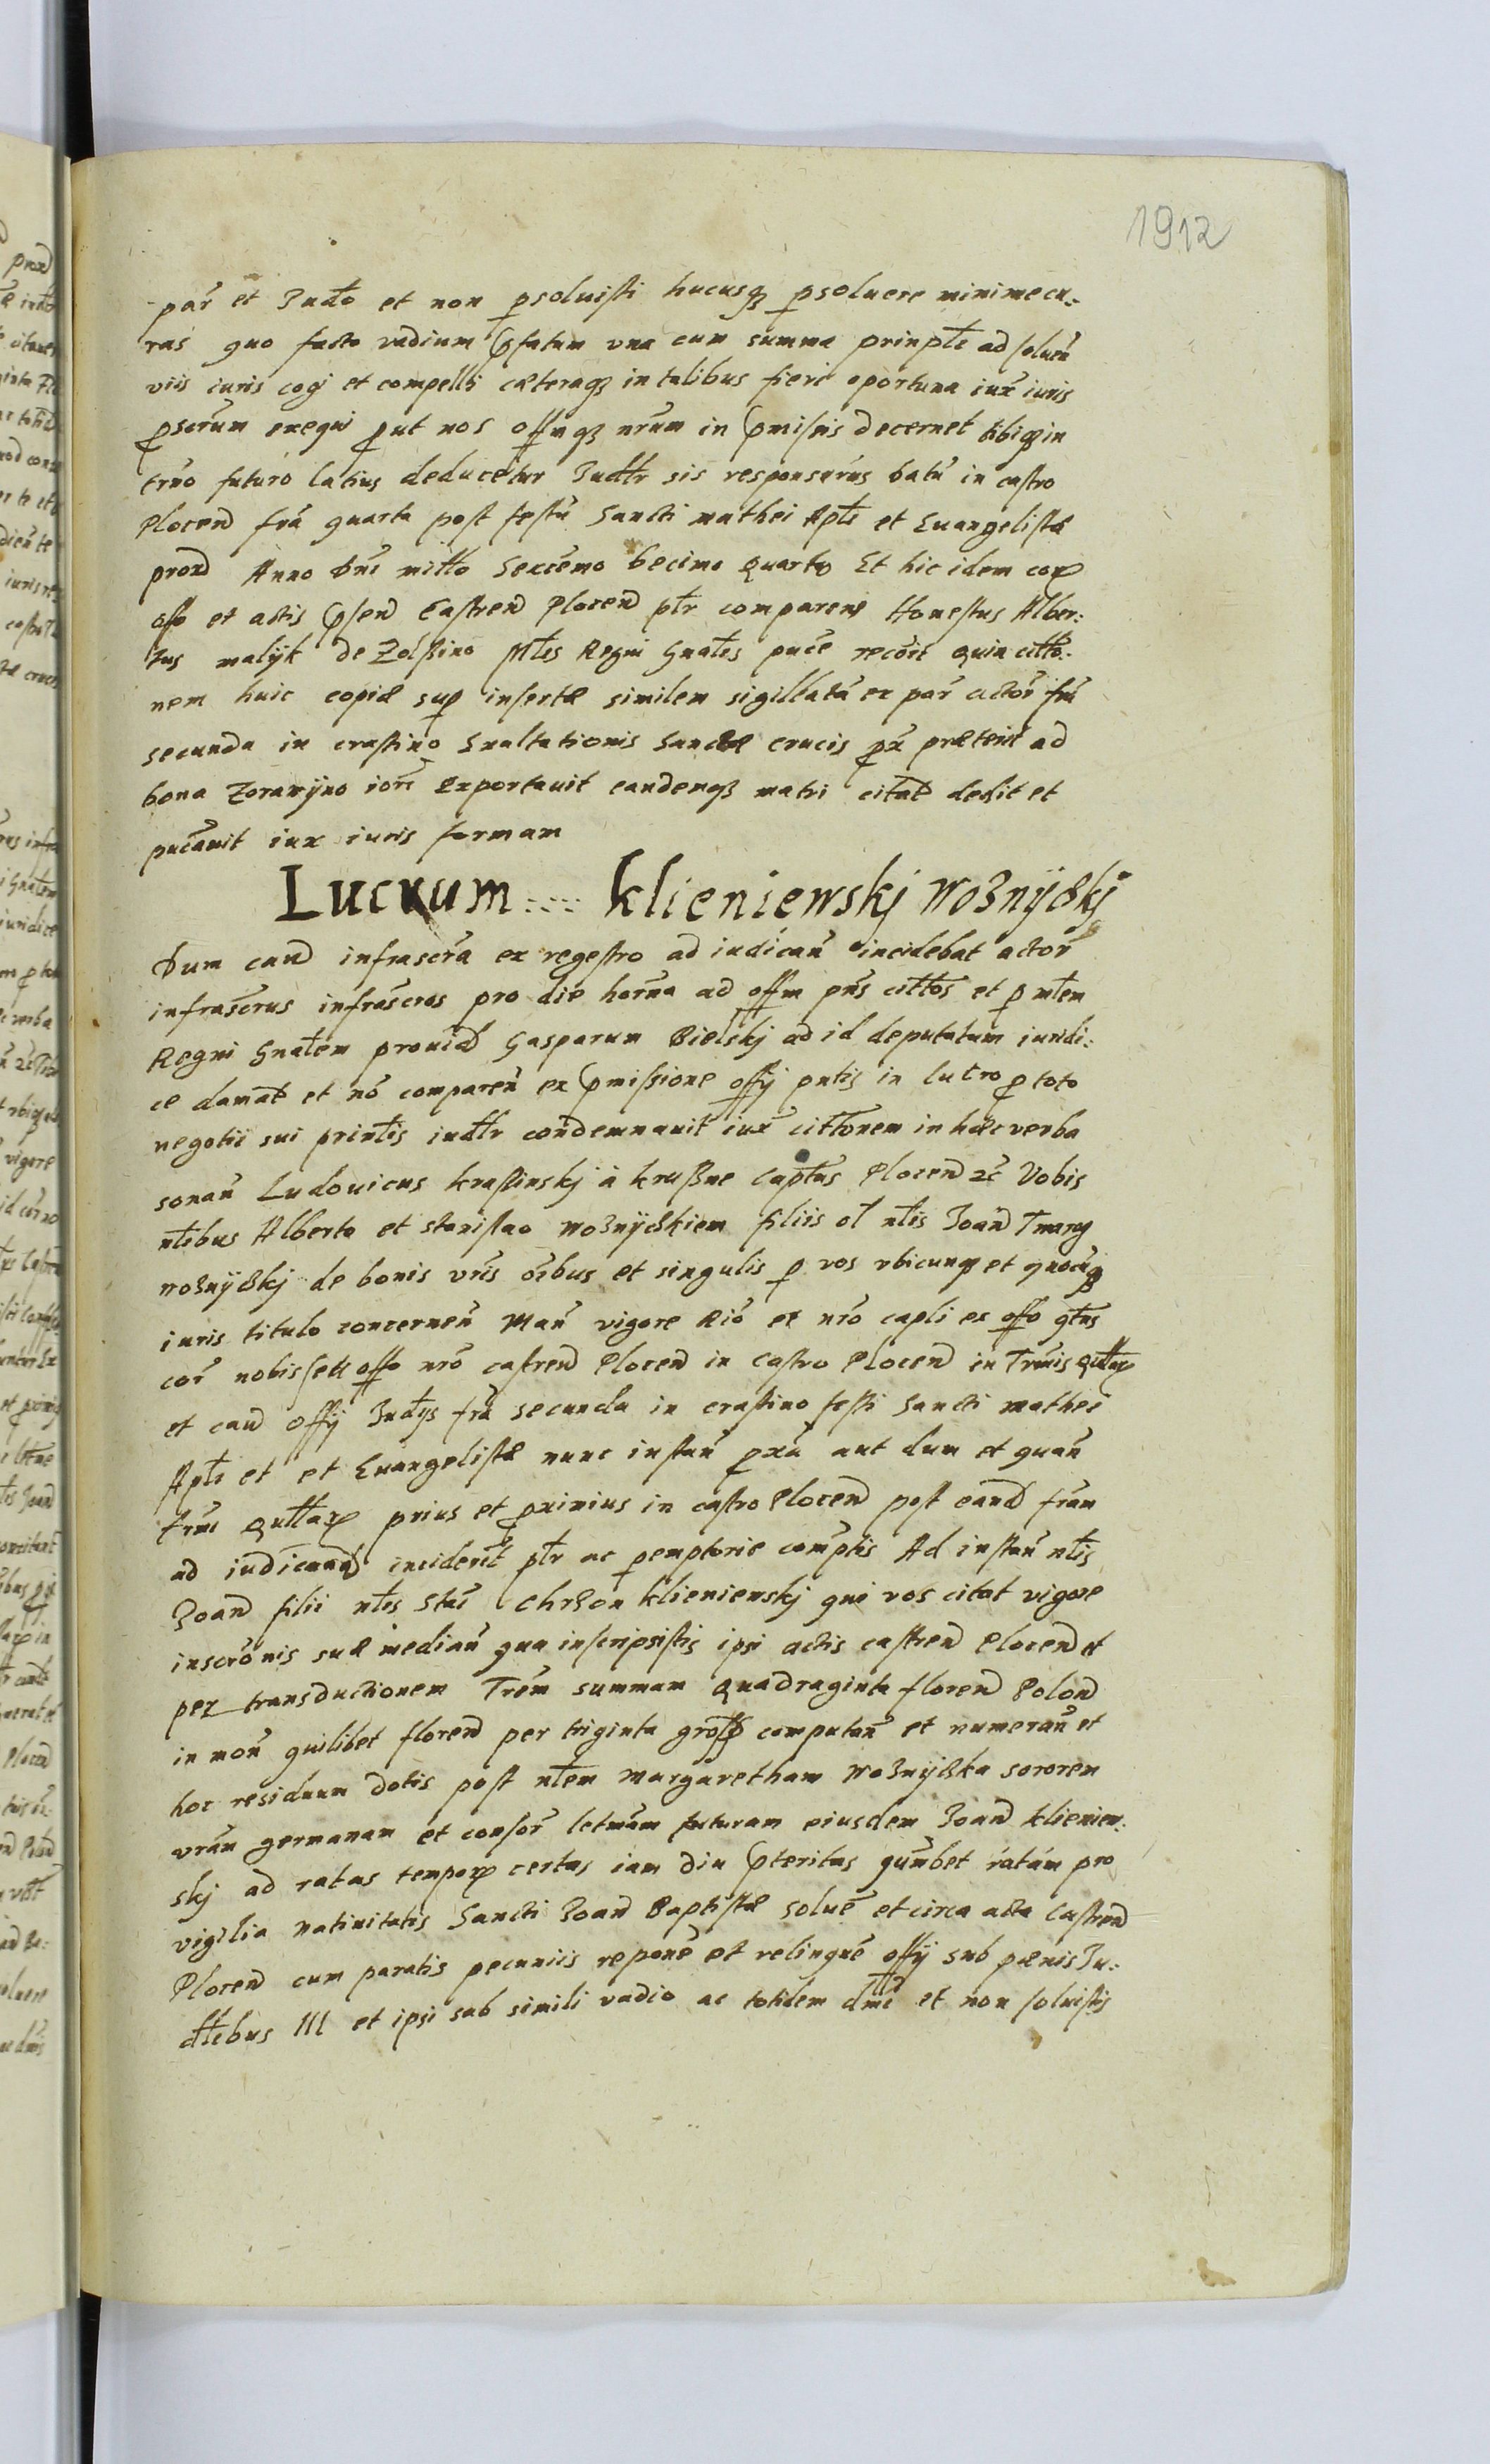 1912
par et Judto et non psoluisti hucusq psoluere minime cu:
ras quo facto vadium pfatum vna cum summa prinpli ad soluen
viis iuris cogi et compelli cæteraq in talibus fieri oportuna iux iuris
pscrum exequi put nos offmq nrum in pmissis decernet tibiq in
trno futuro latius deducetur Judtr sis responsurus Datu in castro
Plocen fra quarta post festu Sancti Mathei Apli et Euangelistæ
prox Anno Dni millo Sexcemo Decimo Quarto Et hic idem cor
offo et actis psen Castren Plocen ptr comparens Honestus Alber:
tus malijk de Zolßino Mtis Regni Gnalis puce recoit quia citto:
nem huic copiæ sup insertæ similem sigillata ex par actor fra
secunda in crastino Exaltationis Sanctæ crucis px præterit ad
bona Zorawijno iore Exportauit eandemq matri citat dedit et
pucauit iux iuris formam
Lucrum :::: klieniewskj Woznijczkj
Dum caus infrascra ex regestro ad iudican incidebat actor
infrascrus infrascros pro die horna ad offm pns cittos et p mtem
Regni Gnalem prouid Gasparum Bielskj ad id deputatum iuridi:
ce clamat et no comparen ex pmissione offij pntis in lucro p toto
negotii sui printis iudtr condemnauit iux cittonem in hæc verba
sonan Ludouicus krasinskj à kraßne Captus Plocen &c Vobis
ntibus Alberto et stanislao Woznijczkiem filiis ol ntis Joan
woznijczkj de bonis vris oibus et singulis p vos vbicunq et quocuq
iuris titulo concernen Man vigore Rio et nro capli ex offo gtus
cor nobis seu offo nro castren Plocen in Castro Plocen in Trnis quttar
et caus offij Judtijs fra secunda in crastino festi Sancti Mathei
Apli et et Euangelistæ nunc instan pxa aut dum et quan
trni quttar prius et pximius in castro Plocen post eand fram
ad iudicand inciderit ptr ac pemptorie comptis Ad instan ntis
Joan filii ntis Stai Chrzon klieniewskj qui vos citat vigore
inscronis suæ median qua inscripsistis ipsi actis castren Plocen et
per transductionem Trem summam Quadraginta floren Polon
in mon quilibet floren per triginta gross computan et numeran et
hoc residuum dotis post ntem Margaretham Woznijczka sororem
vram germanam et consor letmam futuram eiusdem Joan klieniew:
skj ad ratas tempor certas iam diu pteritas qumbet ratam pro
vigilia Natiuitatis Sancti Joan Baptistæ solue et circa acta Castren
Plocen cum paratis pecuniis repone et relinque offij sub pænis Ju:
dtibus III et ipsi sub simili vadio ac totidem dmi et non soluistis